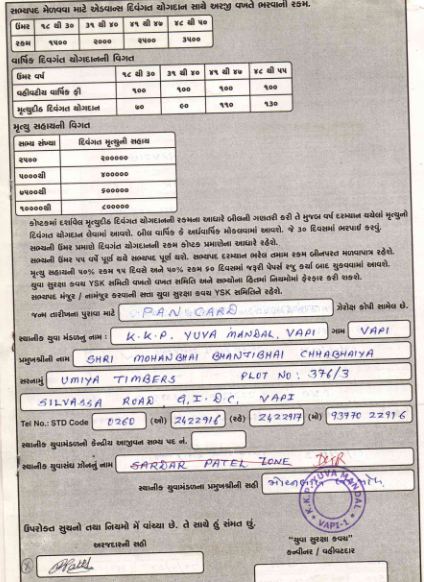 સભ્યપદ મેળવવા માટે એડવાન્સ દિવંગત યોગદાન સાથે અરજી વખતે ભરવાની રકમ.
ઉંમર ૧૮ થી ૩૦ ૩૧ થી ૪૦ ૪૧ થી ૪૭ ૪૮ થી ૫૦
રકમ ૧૫૦૦ ૨૦૦૦ ૨૫૦૦ ૩૫૦૦
વાર્ષિક દિવંગત યોગદાનની વિગત
ઉંમર વર્ષ ૧૮ થી ૩૦ ૩૧ થી ૪૦ ૪૧ થી ૪૭ ૪૮ થી ૫૫
વહીવટીય વાર્ષિક ફી ૧૦૦ ૧૦૦ ૧૦૦ ૧૦૦
મૃત્યુદીઠ દિવંગત યોગદાન ૭૦ ૯૦ ૧૧૦ ૧૩૦
મૃત્યુ સહાયની વિગત
સભ્ય સંખ્યા દિવંગત મૃત્યુની સહાય
૨૫૦૦ ૨૦૦૦૦૦
૫૦૦૦થી ૪૦૦૦૦૦
૭૫૦૦થી ૬૦૦૦૦૦
૧૦૦૦૦થી ૮૦૦૦૦૦
કોષ્ટકમાં દર્શાવેલ મૃત્યુદીઠ દિવંગત યોગદાનની રકમના આધારે બીલની ગણતરી કરી તે મુજબ વર્ષ દરમ્યાન થયેલાં મૃત્યુની
દિવંગત યોગદાન લેવામાં આવશે. બીલ વાર્ષિક કે અર્ધવાર્ષિક મોકલવામાં આવશે. જે ૩૦ દિવસમાં ભરપાઈ કરવું.
સભ્યની ઉંમર પ્રમાણે દિવંગત યોગદાનની રકમ કોષ્ટક પ્રમાણેના આધારે રહેશે.
સભ્યની ઉંમર ૫૫ વર્ષે પૂર્ણ થયે સભ્યપદ પૂર્ણ થશે. સભ્યપદ દરમ્યાન ભરેલ તમામ રકમ બીનપરત મળવાપાત્ર રહેશે.
મૃત્યુ સહાયની ૫૦% રકમ ૧૫ દિવસે અને ૫૦% રકમ ૬૦ દિવસમાં જરૂરી પેપર્સ રજુ કર્યા બાદ ચુકવવામાં આવશે.
યુવા સુરક્ષા કવચ YSK સમિતી વખતો વખત સમિતિ અને સભ્યોના હિતમાં નિયમોમાં ફેરફાર કરી શકશે.
સભ્યપદ મંજુર / નામંજુર કરવાની સત્તા યુવા સુરક્ષા કવચ YSK સમિતિને રહેશે.
જન્મ તારીખના પુરાવા માટે PAN CARD ઝેરોક્ષ કોપી સામેલ છે.
સ્થાનીક યુવા મંડળનું નામ : K.K.P. YUVA MANDAL, VAPI ગામ VAPI
પ્રમુખશ્રીની નામ SHRI MOHANBHAI BHANTIBHAI CHHABHAIYA
સરનામું UMIYA TIMBERS PLOT NO: 376/3
SILVASSA ROAD G.I.D.C, VAPI
Tel No.: STD Code 0260 (ઓ) 2422916 (રહે) 2422917 (મો) 93770 22996
સ્થાનીક યુવામંડળનો કેન્દ્રીય આજીવન સભ્ય પદ નં.
સ્થાનીક યુવાસંઘ ઝોનનું નામ SARDAR PATEL ZONE
સ્થાનીક યુવામંડળના પ્રમુખશ્રીની સહી
K.K.P. YUVA MANDAL
VAPI-1
ઉપરોક્ત સુચનો તથા નિયમો મેં વાંચ્યા છે. તે સાથે હું સંમત છું.
અરજદારની સહી "યુવા સુરક્ષા કવચ"
કન્વીનર / વહીવટદાર